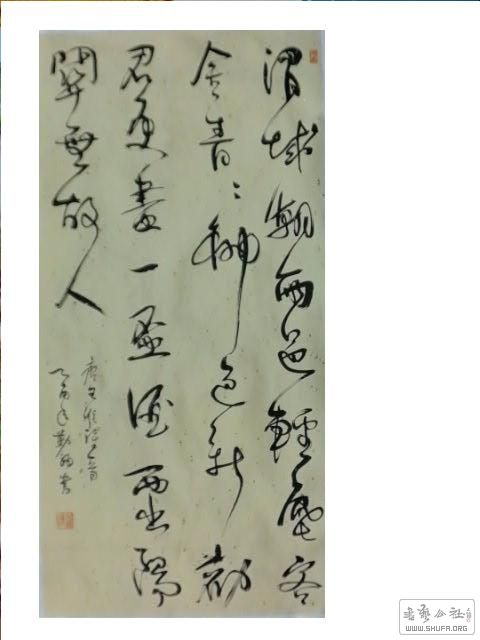 渭城朝雨浥輕塵客
舍青々柳色新勸
君更盡一盃酒西出陽
關無故人
唐王維詩一首
乙酉年書
书艺公社
WWW.SHUFA.ORG